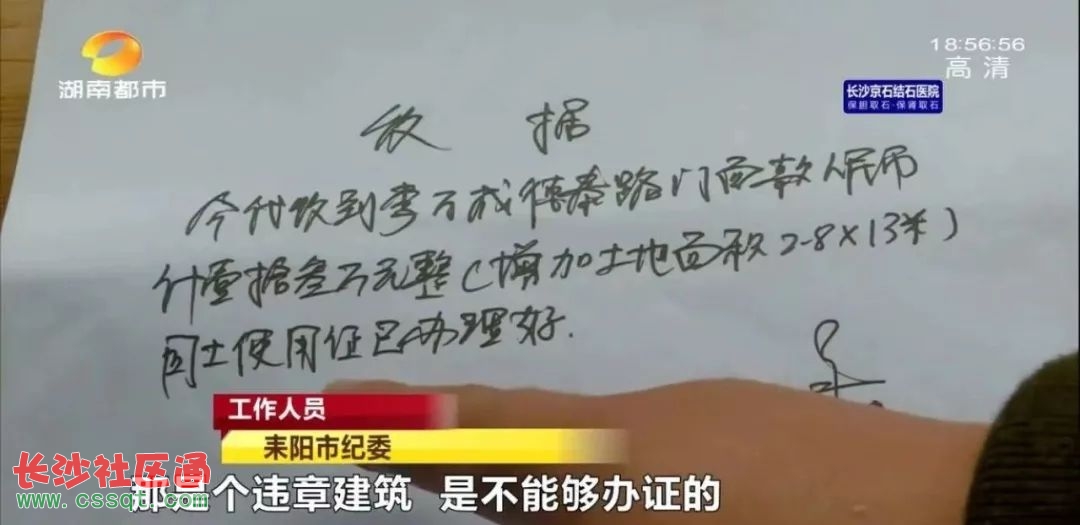 湖南都市
18:56:56
高清
长沙京石结石医院
保胆取石·保肾取石
收 据
今代收到李万成德泰路门面款人民币
计壹拾叁万元整(增加土地面积2.8×13米)
国土使用证已办理好.
工作人员
耒阳市纪委
长沙社区通
www.cssqt.com
那是个违章建筑 是不能够办证的